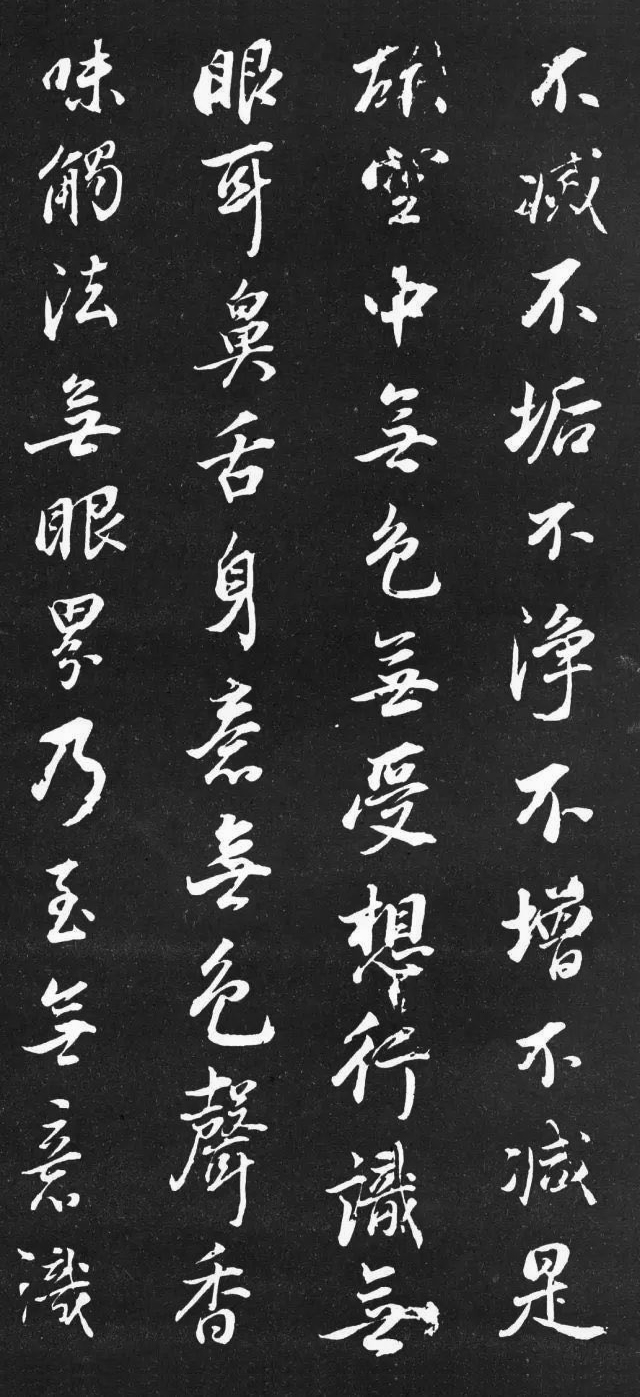 不滅不垢不淨不增不減是
故空中無色無受想行識無
眼耳鼻舌身意無色聲香
味觸法無眼界乃至無意識